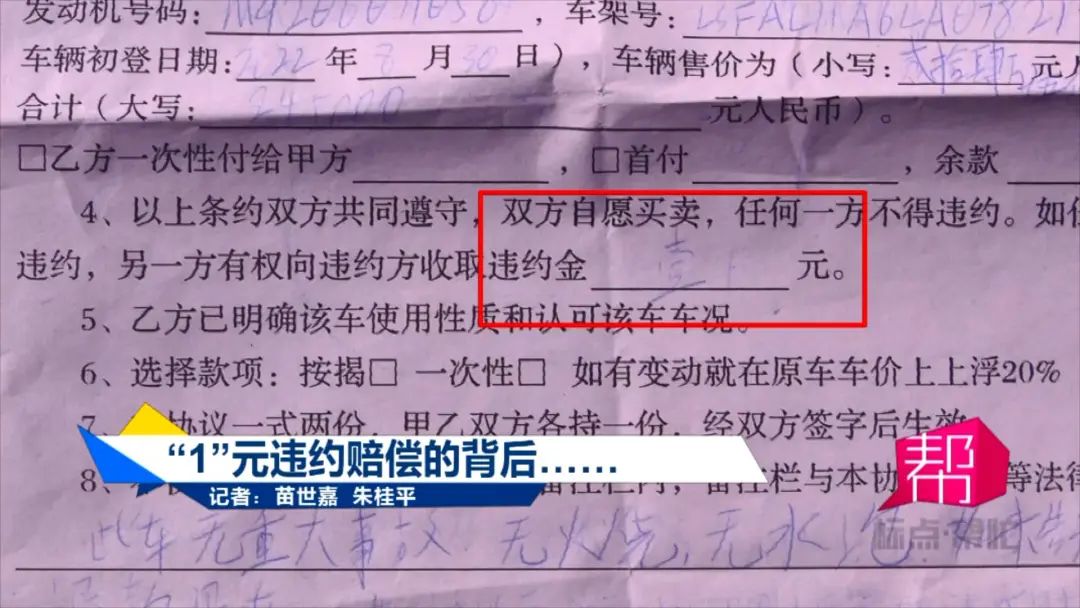 发动机号码:            ,车架号:
车辆初登日期: 2022 年 8 月 30 日),车辆售价为(小写:贰拾肆万 元人
合计(大写: 245000 元人民币)。
□乙方一次性付给甲方            ,□首付            ,余款
4、以上条约双方共同遵守,双方自愿买卖,任何一方不得违约。如
违约,另一方有权向违约方收取违约金 壹 元。
5、乙方已明确该车使用性质和认可该车车况。
6、选择款项:按揭□ 一次性□ 如有变动就在原车车价上上浮20%
7、协议一式两份,甲乙双方各持一份,经双方签字后生效
“1”元违约赔偿的背后……
8、 备注栏内,备注栏与本协 等法律
记者:苗世嘉 朱桂平
帮
标点·帮忙
此车无重大事故 无火烧,无水泡